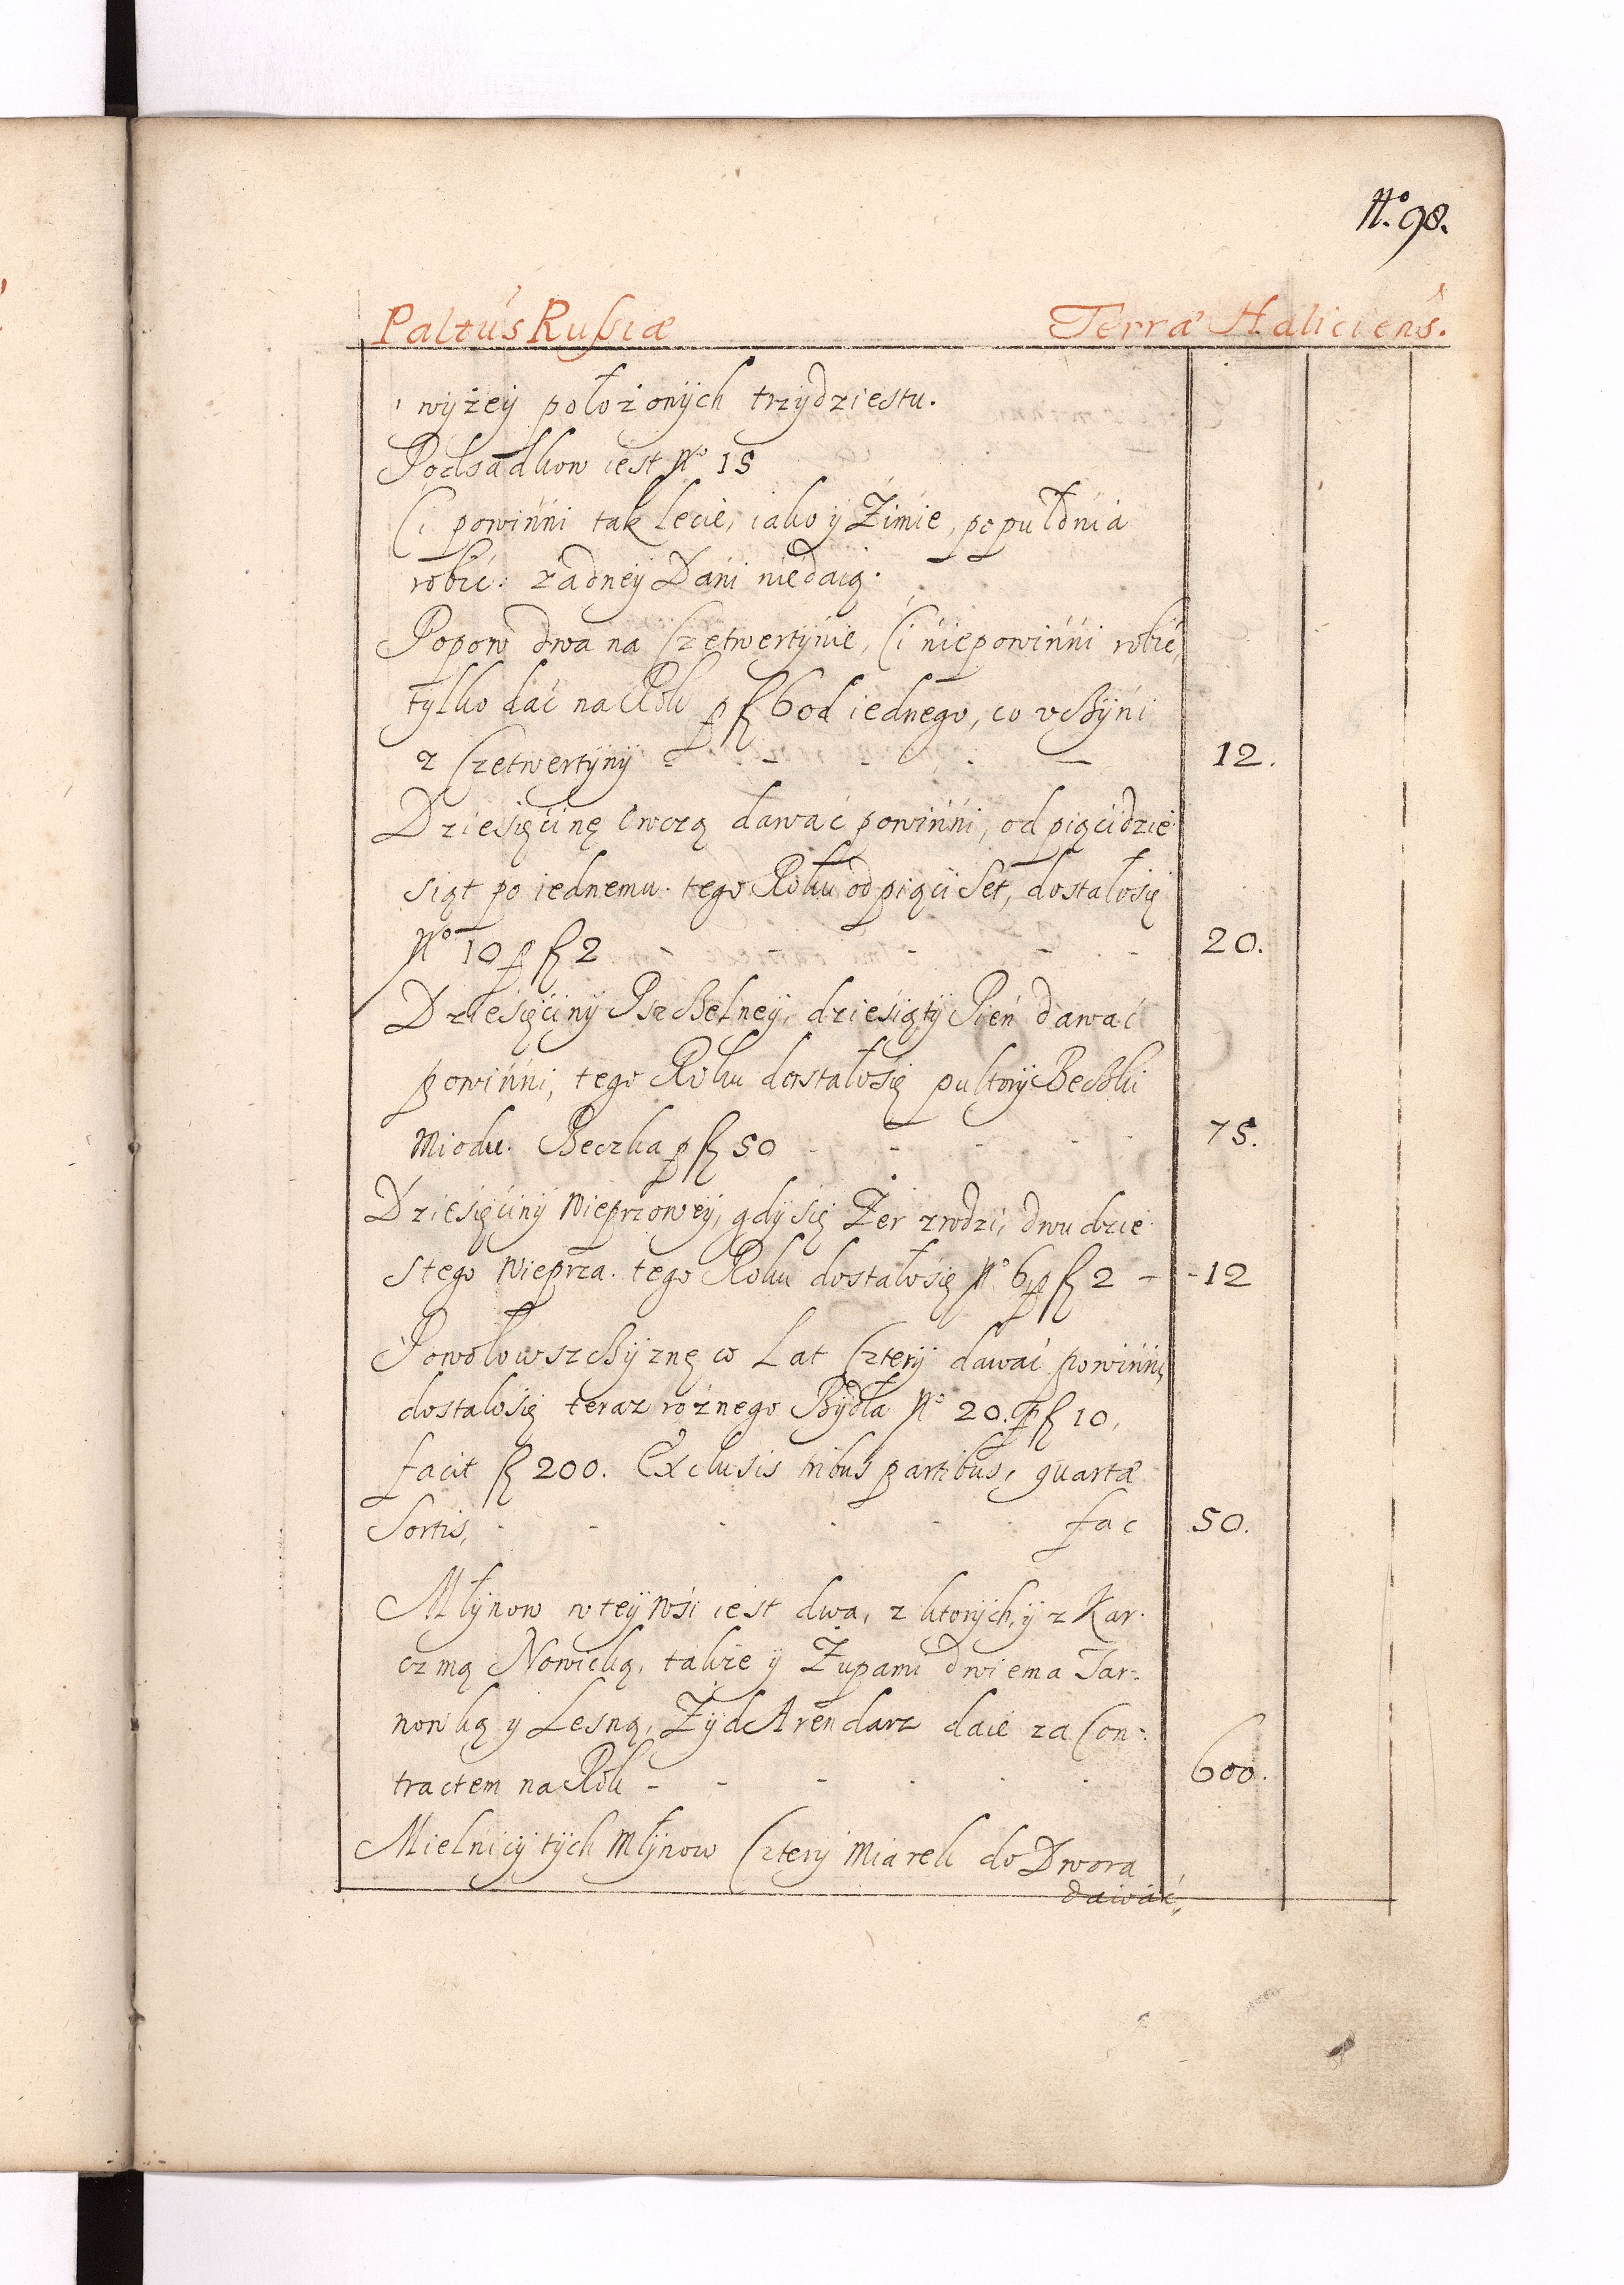 No. 98.
Paltus Russiæ Terræ Haliciens.
wyżey położonych trzydziestu.
Podsadkow iest No 15
Ci powinni tak lecie, iako y Zimie, po pułdnia
robić: żadney Dani niedaią.
Popow dwa na Czetwertynie, Ci niepowinni robić,
tylko dać na Rok p fl 6 od iednego, co vczyni
z Czetwertyny - - - - 12.
Dziesięcinę Owczą dawać powinni, od pięcidzie
siąt po iednemu. tego Roku od pięci Set, dostałosię
No 10 p fl 2 - - - - 20.
Dziesięciny Pszczelney, dziesiąty Pień dawać
powinni, tego Roku dostałosię pułtory Beczki
Miodu. Beczka p fl 50 - - - - 75.
Dziesięciny Nieprzowey, gdysię Żer zrodzi, dwudzie
stego Nieprza. tego Roku dostałosię No 6 p fl 2 - - 12
Powołowszczyznę co Lat Cztery dawać powinni,
dostalosię teraz rożnego Bydła No 20. p fl 10,
facit fl 200. Exclusis tribus partibus, quartæ
Sortis, - - - - - fac 50.
Młynow w tey Wsi iest dwa, z ktorych, y z Kar-
czmą Nowicką, takze y Żupami dwiema Tar-
nowką y Lesną, Żyd Arendarz daie za Con-
tractem na Rok - - - - - 600.
Mielnicy tych Młynow Cztery Miarek do Dwora
dawać,